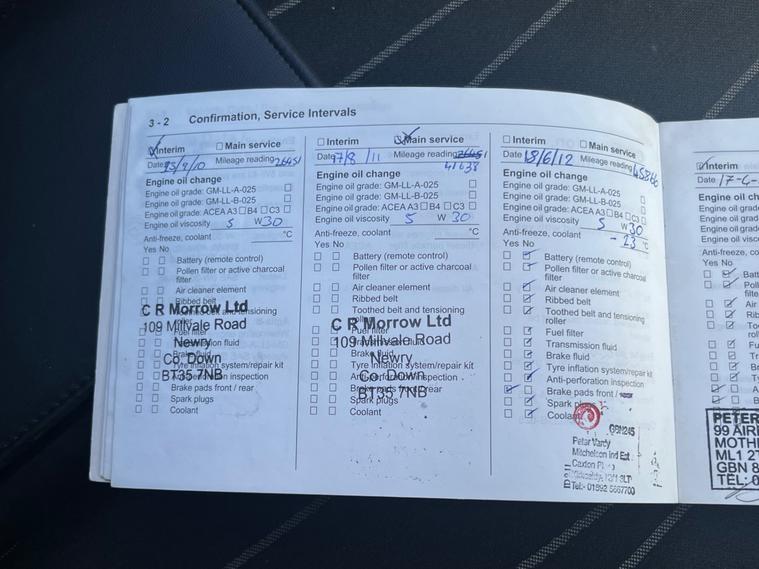 3 - 2 Confirmation, Service Intervals
Interim Main service
Date Mileage reading 26451
Engine oil change
Engine oil grade: GM-LL-A-025
Engine oil grade: GM-LL-B-025
Engine oil grade: ACEA A3 B4 C3
Engine oil viscosity 5 W 30
Anti-freeze, coolant °C
Yes No
Battery (remote control)
Pollen filter or active charcoal
filter
Air cleaner element
Ribbed belt
C R Morrow Ltd
109 Millvale Road
Newry
Co. Down
BT35 7NB
Brake pads front / rear
Spark plugs
Coolant
Interim Main service
Date 17/8/11 Mileage reading
41638
Engine oil change
Engine oil grade: GM-LL-A-025
Engine oil grade: GM-LL-B-025
Engine oil grade: ACEA A3 B4 C3
Engine oil viscosity 5 W 30
Anti-freeze, coolant °C
Yes No
Battery (remote control)
Pollen filter or active charcoal
filter
Air cleaner element
Ribbed belt
Toothed belt and tensioning
C R Morrow Ltd
109 Millvale Road
Newry
Co. Down
BT35 7NB
Brake fluid
Tyre inflation system/repair kit
Spark plugs
Coolant
Interim Main service
Date 18/6/12 Mileage reading 45866
Engine oil change
Engine oil grade: GM-LL-A-025
Engine oil grade: GM-LL-B-025
Engine oil grade: ACEA A3 B4 C3
Engine oil viscosity 5 W 30
Anti-freeze, coolant - 23 °C
Yes No
Battery (remote control)
Pollen filter or active charcoal
filter
Air cleaner element
Ribbed belt
Toothed belt and tensioning
roller
Fuel filter
Transmission fluid
Brake fluid
Tyre inflation system/repair kit
Anti-perforation inspection
Brake pads front /
Spark plugs
Coolant
GBN245
Peter Vardy
Mitchelson Ind Est
Tel:- 01592 5667700
Interim
Date 17-4-
Engine oil
PETER
99 AIR
MOTH
ML1 2
GBN 8
TEL: 0